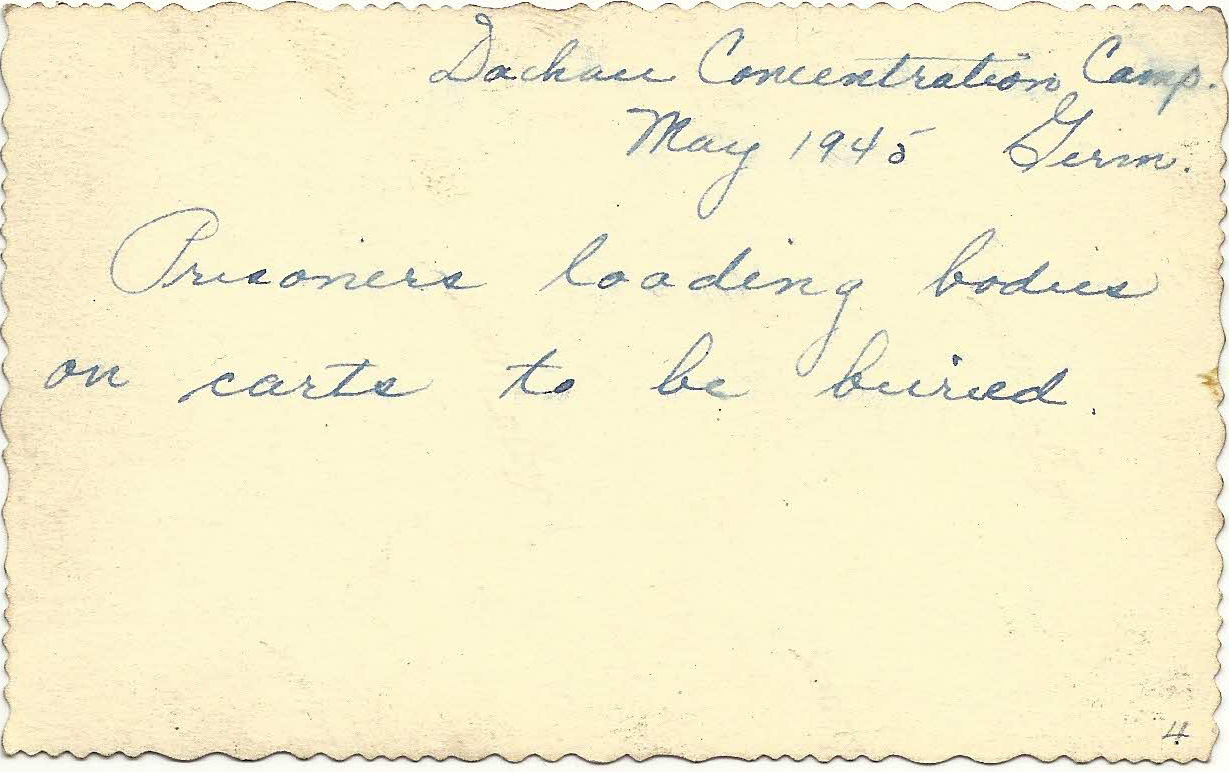 Dachau Concentration Camp.
May 1945 Germ.
Prisoners loading bodies
on carts to be buried.
4